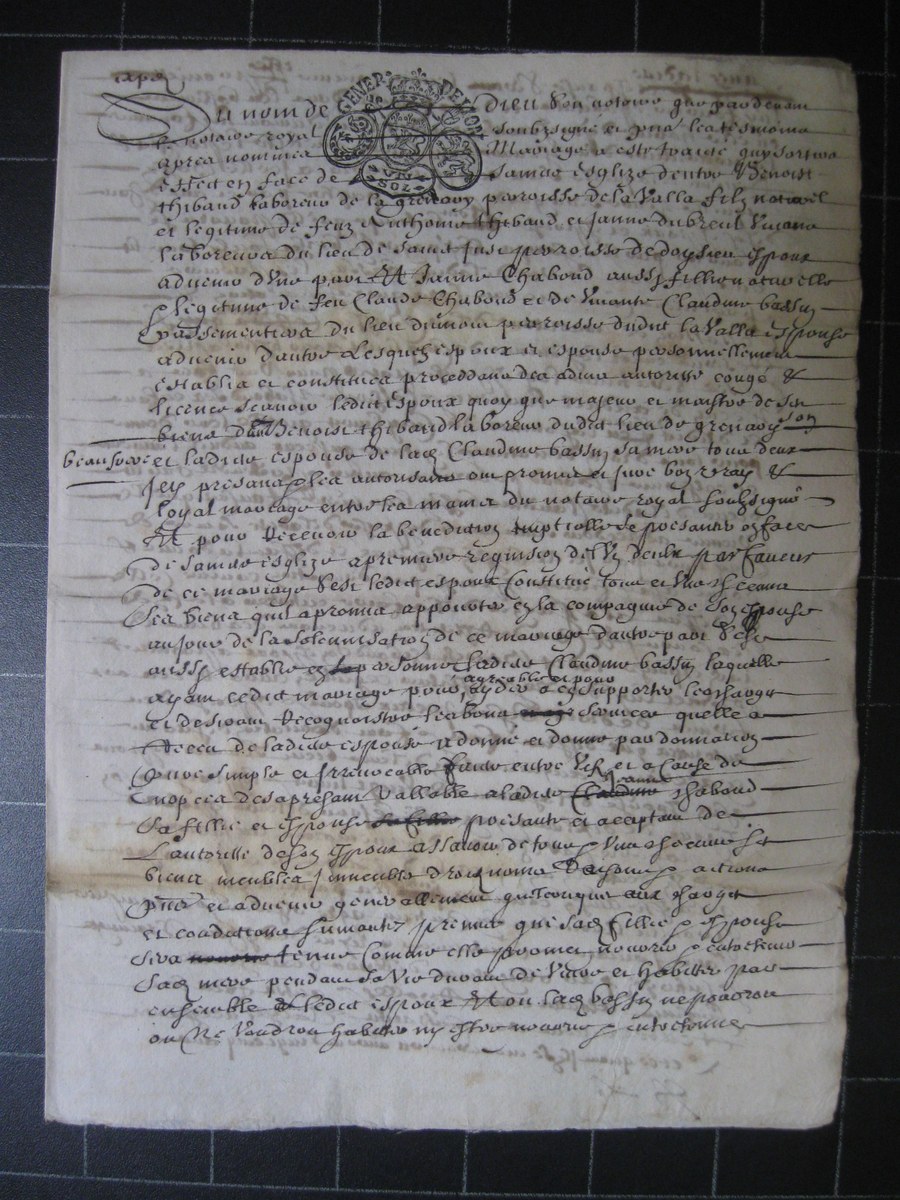 expé
GENER DE LYON
Au nom de Dieu soit notoire que pardevant
le notaire royal soubzsigné et pnts les tesmoins
apres nommes Mariage a este traicte quy sortira
DIX SOLZ
effect en face de saincte esglize d'entre Benoist
thibaud laboreur de la grenary parroisse de la Valla filz naturel
et legitime de feuz Anthoine thibaud et Janne dubreul vivans
laboreurs du lieu de sainct Just parroisse de doysieu espoux
advenir d'une part Et Janne Chaboud aussy fillie naturelle
& legitime de feu Claude Chaboud et de vivante Claudine bassin
passementiers du lieu parroisse dudit la Valla espouse
advenir d'autre Lesquelz espoux et espouse personnellement
establis et constitues proceddans des advis autorité congé &
licence scavoir ledict espoux quoy que majeur et maistre de ses
biens de Benoist thibaud laboreur dudit lieu de grenary son
beau frere et ladite espouse de lad Claudine bassin sa mere tous deux
Icy presans & les autorisans ont promis et jure bon vray &
loyal mariage entre les mains du notaire royal soubzsigné
Et pour recevoir la benediction nuptialle se presenter en face
de saincte esglize a premiere requisition de l'un d'eulx par faveur
de ce mariage s'est ledict espoux constitué tous et uns checuns
ses biens qu'il a promis apporter en la compagnie de son espouse
au jour de la solemnisation de ce mariage d'autre part s'est
aussy establie en personne ladite Claudine bassin laquelle
agreable et pour
ayant ledict mariage pour ayder a en supporter les charges
et desirant recognoistre les bons services quelle a
receu de ladite espouse a donné et donne par donnation
pure simple et irrevocable faicte entre vifz et a cause de
Janne
nopces des apresant vallable a ladite Chaboud
sa fillie et espouse presante et aceptant de
l'autorité de son espoux assavoir de tous & uns chacuns ses
biens meubles immeubles droictz noms raisons & actions
pnts et advenir generallement quelconque aux charges
et conditions suivantes premier que sad fillie & espouse
sera tenue comme elle promet nourrir & entretenir
sad mere pendant sa vie durant de vivre et habitter par
ensemble ledict espoux Et ou lad bassin ne pourroit
ou ne voudroit habiter ny estre nourrie & entretenue